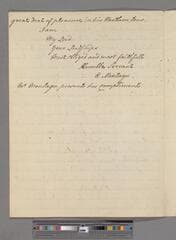 great deal of pleasure in his Northern Tour.
I am
My Lord
Your Lordships
Most Obliged and most faithfull
Humble Servant
E Montagu
Mr Montagu presents his compliments